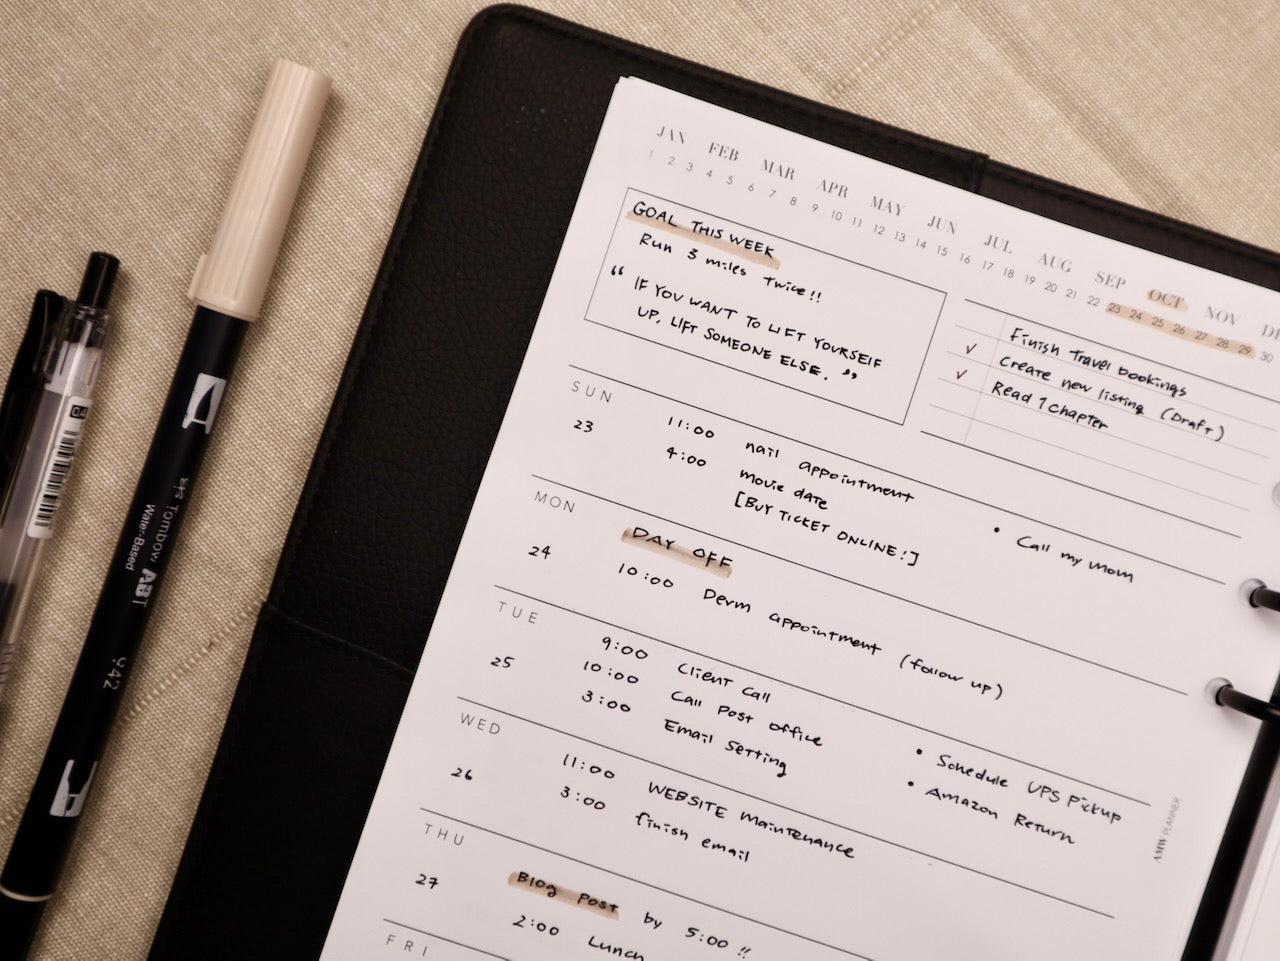 JAN FEB MAR APR MAY JUN JUL AUG SEP OCT NOV
1 2 3 4 5 6 7 8 9 10 11 12 13 14 15 16 17 18 19 20 21 22 23 24 25 26 27 28 29 30
GOAL THIS WEEK
Run 3 miles twice!!
“ IF YOU WANT TO LIFT YOURSELF
UP, LIFT SOMEONE ELSE. ”
Finish travel bookings
✓ Create new listing (Draft)
✓ Read 1 Chapter
SUN
23
11:00 nail appointment
4:00 movie date
[BUY TICKET ONLINE!]
• Call my mom
MON
24
DAY OFF
10:00 Derm appointment (follow up)
TUE
25
9:00 Client call
10:00 Call Post office
3:00 Email Setting
• Schedule UPS Pickup
• Amazon Return
WED
26
11:00 WEBSITE Maintenance
3:00 finish email
THU
27
Blog Post by 5:00 !!
2:00 Lunch
FRI
AMW PLANNER
Tombow ABT
Water-Based
942
0.4